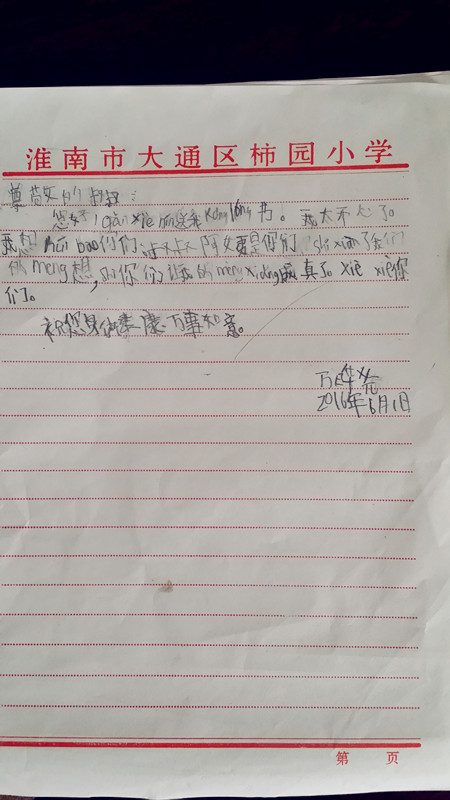 淮南市大通区柿园小学
尊敬的叔叔：
您好！gǎn xiè 您送我 kǒng lóng 书。我太开心了。
我想 bào 你们，叔叔阿 是你们 shí xiàn 了我们
的 meng 想，是你们让我的 meng xiǎng 成真了。xiè xiè 你
们。
祝您身体建康万事如意。
2016年6月1日
第 页